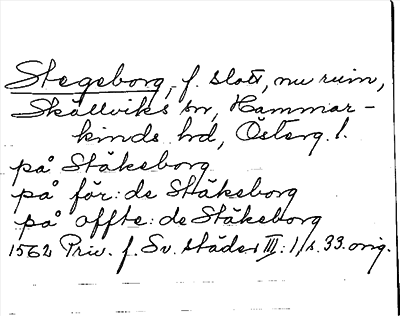 Stegeborg, f. slott, nu ruin,
Skällviks sn, Hammar-
kinds hd, Österg. l.
på Stäkeborg
på för:de Stäkeborg
på offte:de Stäkeborg
1562 Priv. f. Sv. städer III: 1, s. 33. orig.